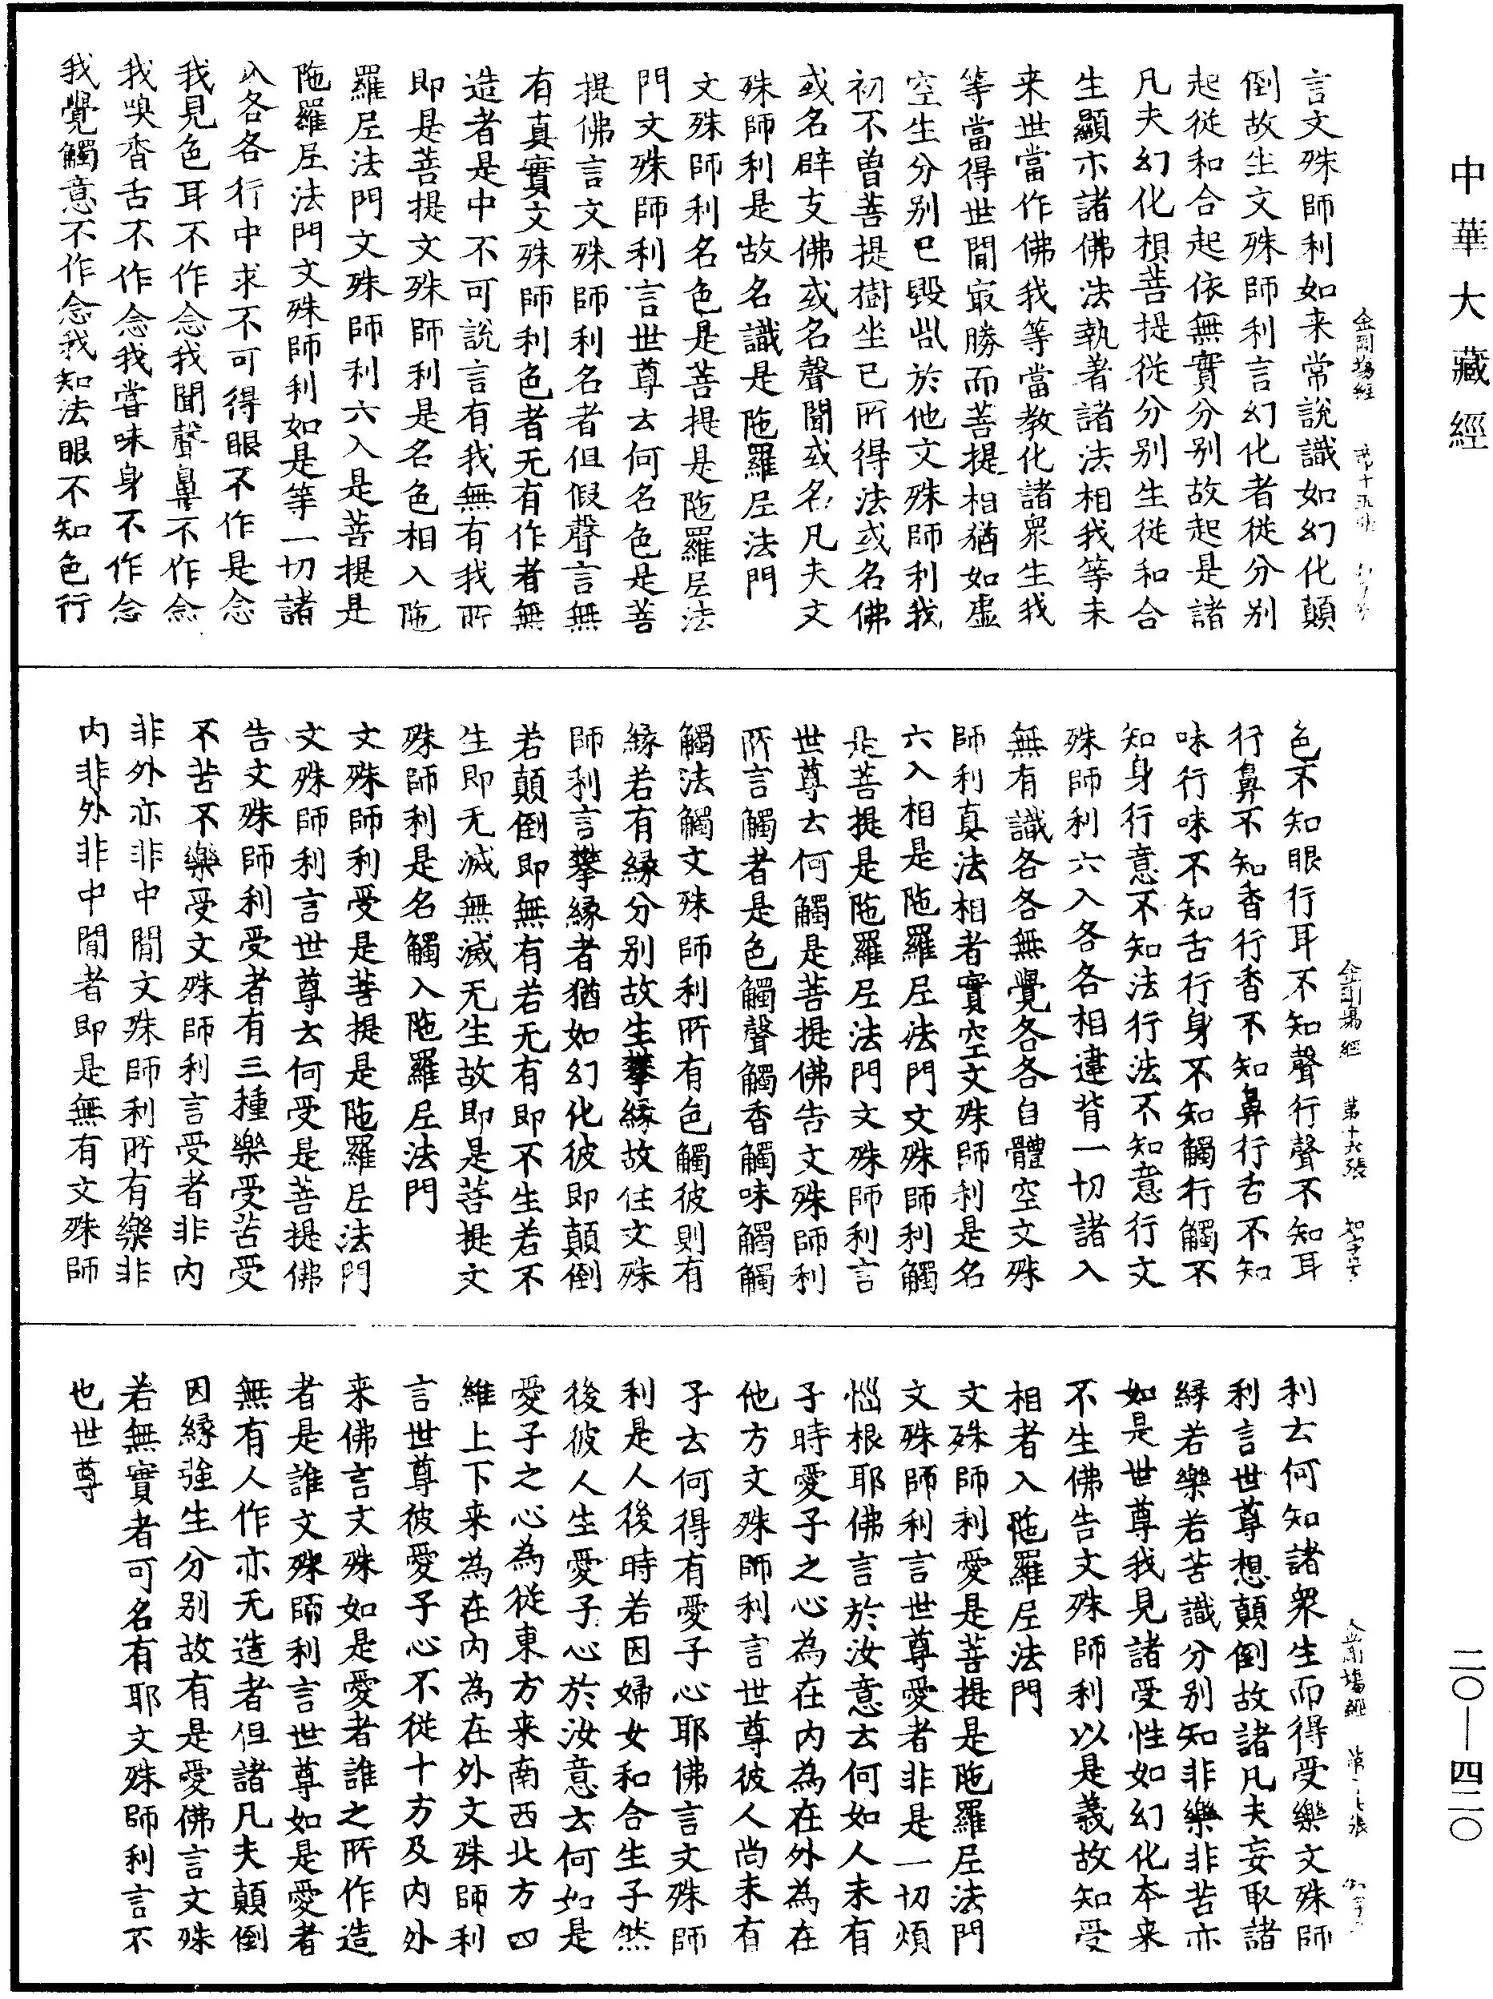 中華大藏經
金剛場經
言文殊師利如来常說識如幻化顛
倒故生文殊師利言幻化者從分别
起從和合起依無實分别故起是諸
凡夫幻化相菩提從分别生從和合
生顯示諸佛法執著諸法相我等未
来世當作佛我等當教化諸衆生我
等當得世間㝡勝而菩提相猶如虛
空生分别已毀呰於他文殊師利我
初不曾菩提樹坐已所得法或名佛
或名辟支佛或名聲聞或名凡夫文
殊師利是故名識是陁羅尼法門
文殊師利名色是菩提是陁羅尼法
門文殊師利言世尊云何名色是菩
提佛言文殊師利名者但假聲言無
有真實文殊師利色者无有作者無
造者是中不可說言有我無有我所
即是菩提文殊師利是名色相入陁
羅尼法門文殊師利六入是菩提是
陁羅尼法門文殊師利如是等一切諸
入各各行中求不可得眼不作是念
我見色耳不作念我聞聲鼻不作念
我嗅香舌不作念我嘗味身不作念
我覺觸意不作念我知法眼不知色行
金剛場經 第十六張
色不知眼行耳不知聲行聲不知耳
行鼻不知香行香不知鼻行舌不知
味行味不知舌行身不知觸行觸不
知身行意不知法行法不知意行文
殊師利六入各各相違背一切諸入
無有識各各無覺各各自體空文殊
師利真法相者實空文殊師利是名
六入相是陁羅尼法門文殊師利觸
是菩提是陁羅尼法門文殊師利言
世尊云何觸是菩提佛告文殊師利
所言觸者是色觸聲觸香觸味觸觸
觸法觸文殊師利所有色觸彼則有
緣若有緣分别故生攀緣故住文殊
師利言攀緣者猶如幻化彼即顛倒
若顛倒即無有若无有即不生若不
生即无滅無滅无生故即是菩提文
殊師利是名觸入陁羅尼法門
文殊師利受是菩提是陁羅尼法門
文殊師利言世尊云何受是菩提佛
告文殊師利受者有三種樂受苦受
不苦不樂受文殊師利言受者非内
非外亦非中間文殊師利所有樂非
内非外非中間者即是無有文殊師
利云何知諸衆生而得受樂文殊師
利言世尊想顛倒故諸凡夫妄取諸
緣若樂若苦識分别知非樂非苦亦
如是世尊我見諸受性如幻化本来
不生佛告文殊師利以是義故知受
相者入陁羅尼法門
文殊師利愛是菩提是陁羅尼法門
文殊師利言世尊愛者非是一切煩
惱根耶佛言於汝意云何如人未有
子時愛子之心為在内為在外為在
他方文殊師利言世尊彼人尚未有
子云何得有愛子心耶佛言文殊師
利是人後時若因婦女和合生子然
後彼人生愛子心於汝意云何如是
愛子之心為從東方来南西北方四
維上下来為在内為在外文殊師利
言世尊彼愛子心不從十方及内外
来佛言文殊如是愛者誰之所作造
者是誰文殊師利言世尊如是愛者
無有人作亦无造者但諸凡夫顛倒
因緣强生分别故有是愛佛言文殊
若無實者可名有耶文殊師利言不
也世尊
二〇—四二〇